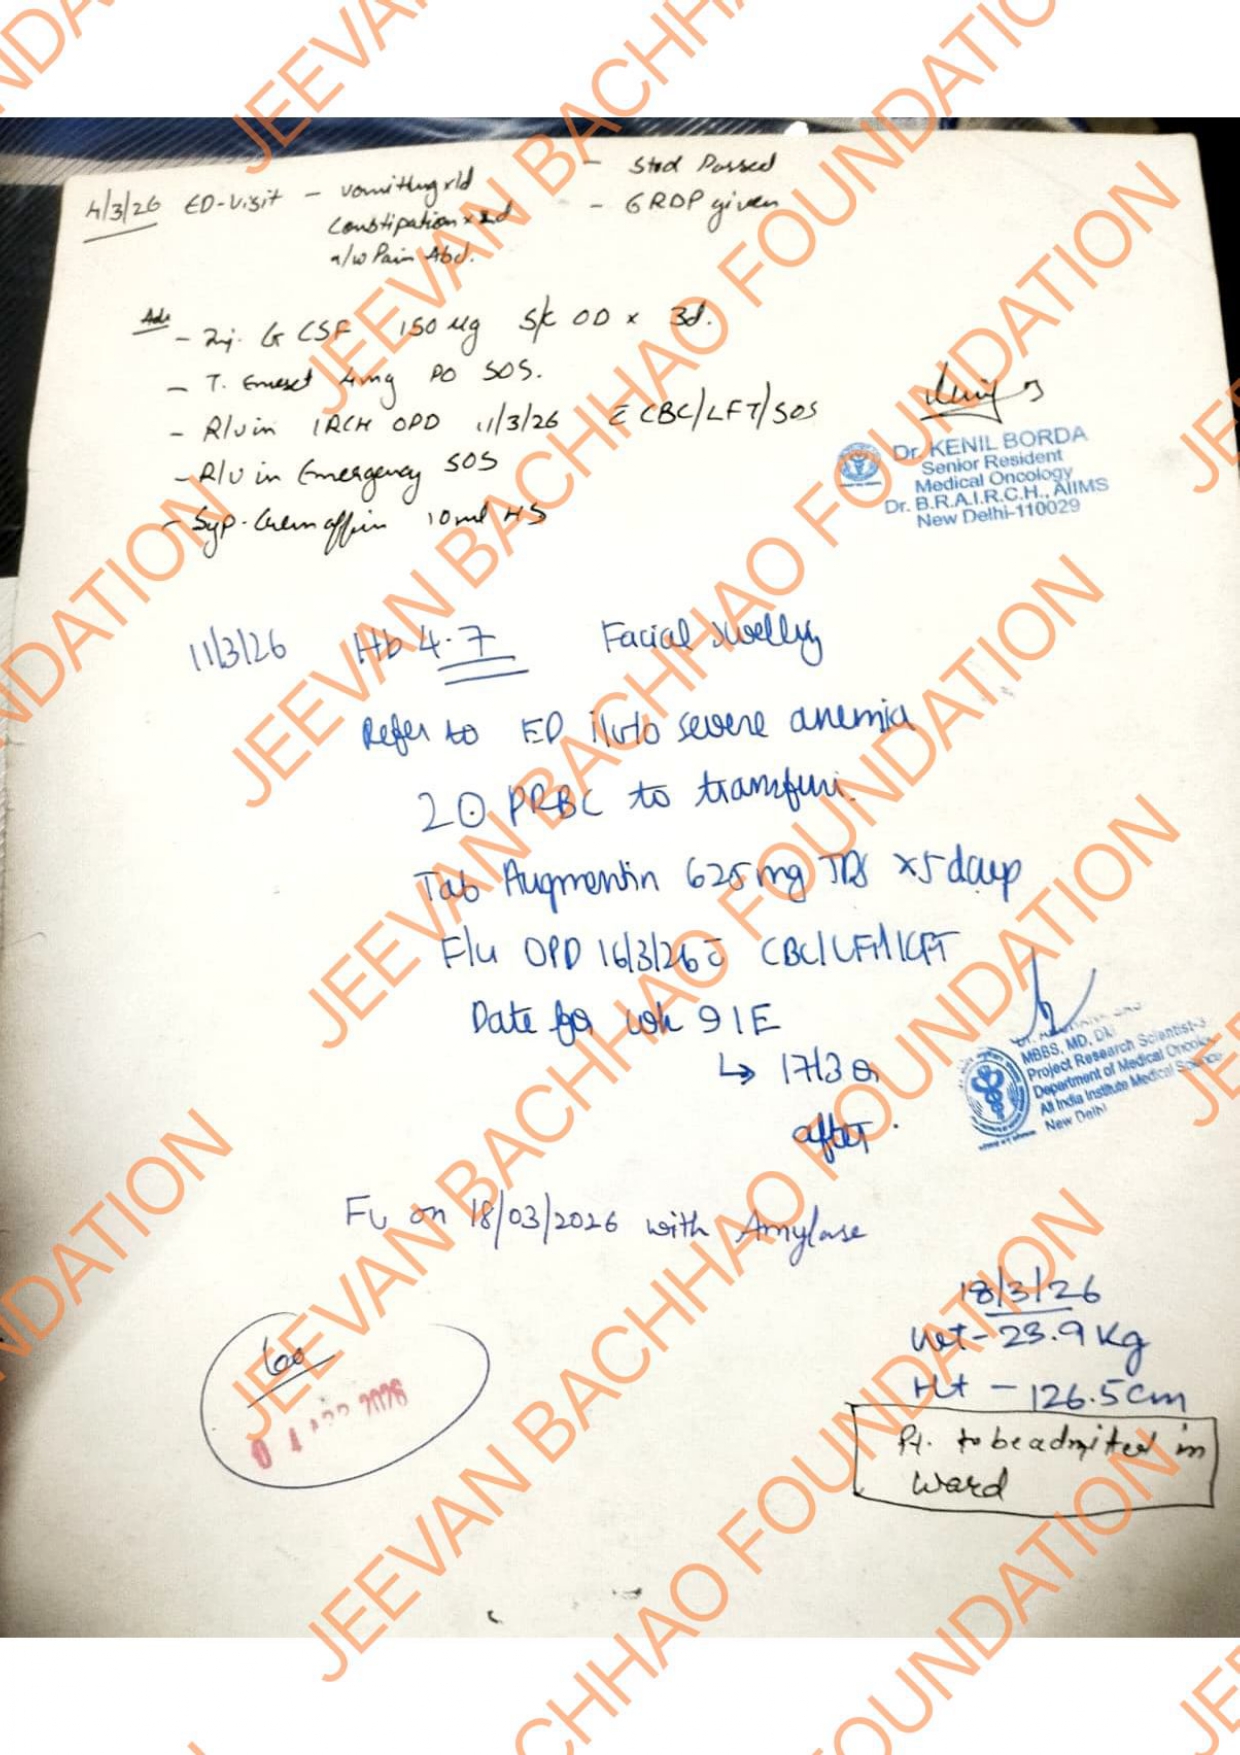 4/3/26 ED-Visit - vomitting x1d - Stool Passed
Constipation x 2d - 6 RDP given
a/w Pain Abd.
Adv - Inj. G CSF 150 ug S/c OD x 3d.
- T. Emeset 4mg PO SOS.
- R/v in IRCH OPD 11/3/26 c CBC/LFT/SOS
- R/v in Emergency SOS
- Syp. Cremaffin 10ml HS
Dr. KENIL BORDA
Senior Resident
Medical Oncology
Dr. B.R.A.I.R.C.H., AIIMS
New Delhi-110029
11/3/26 Hb 4.7 Facial swelling
Refer to ED i/v/o severe anemia
2 PRBC to transfuse.
Tab Augmentin 625mg TDS x 5 days
F/u OPD 16/3/26 c CBC/LFT/KFT
Date for
↳ 17/3
after
MBBS, MD, DM
Project Research Scientist-3
Department of Medical Oncology
All India Institute Medical Science
New Delhi
FU on 18/03/2026 with Amylase
18/3/26
Wt - 23.9 Kg
Ht - 126.5cm
Pt. to be admitted in
ward
2026
JEEVAN BACHHAO FOUNDATION